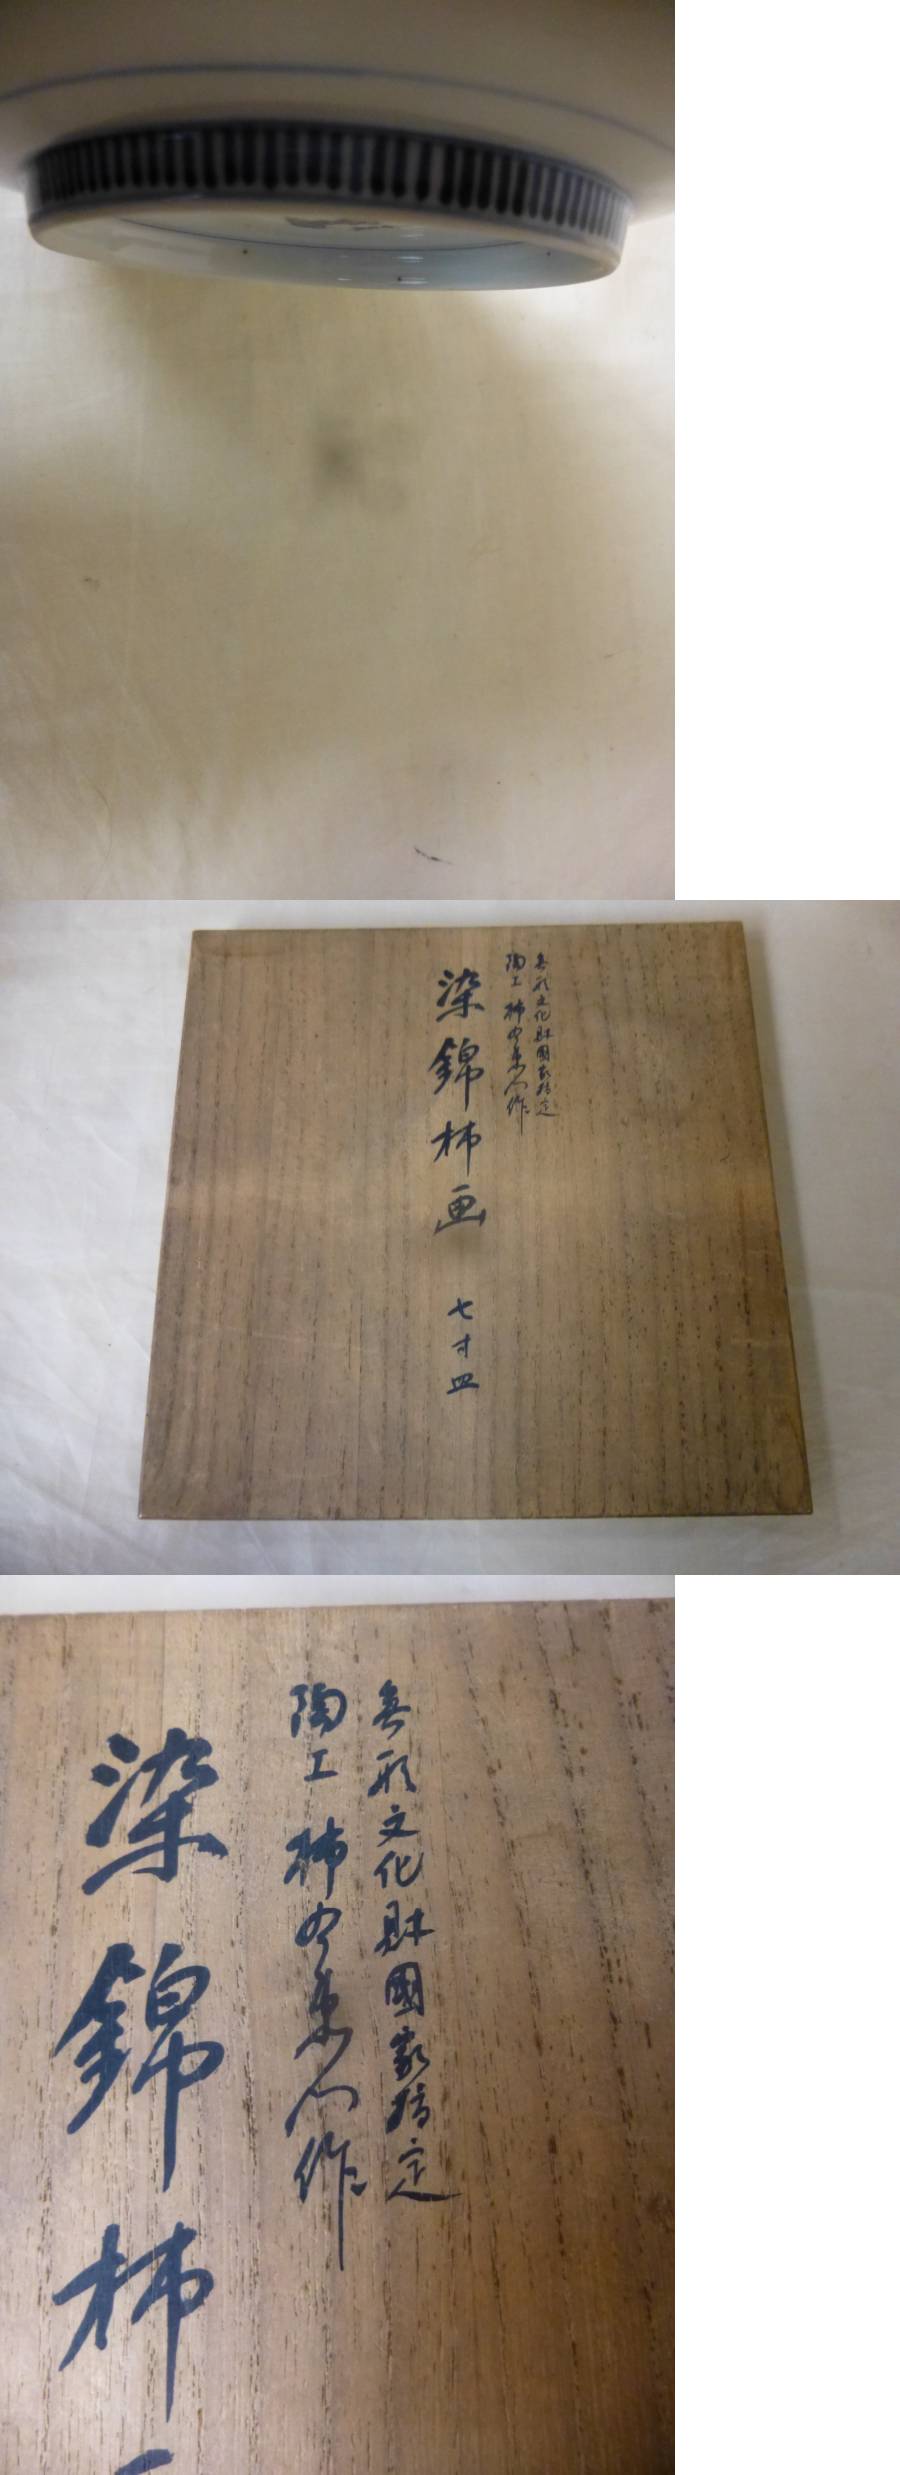 無形文化財國家指定
陶工 柿右衛門作
染錦柿画 七寸皿
無形文化財國家指定
陶工 柿右衛門作
染錦柿